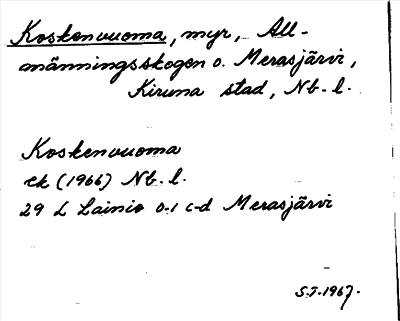 Koskenvuoma, myr, All-
männingsskogen o. Merasjärvi,
Kiruna stad, Nb. l.
Koskenvuoma
ek (1966) Nb. l.
29 L Lainio 0-1 c-d Merasjärvi
S.J. 1967.